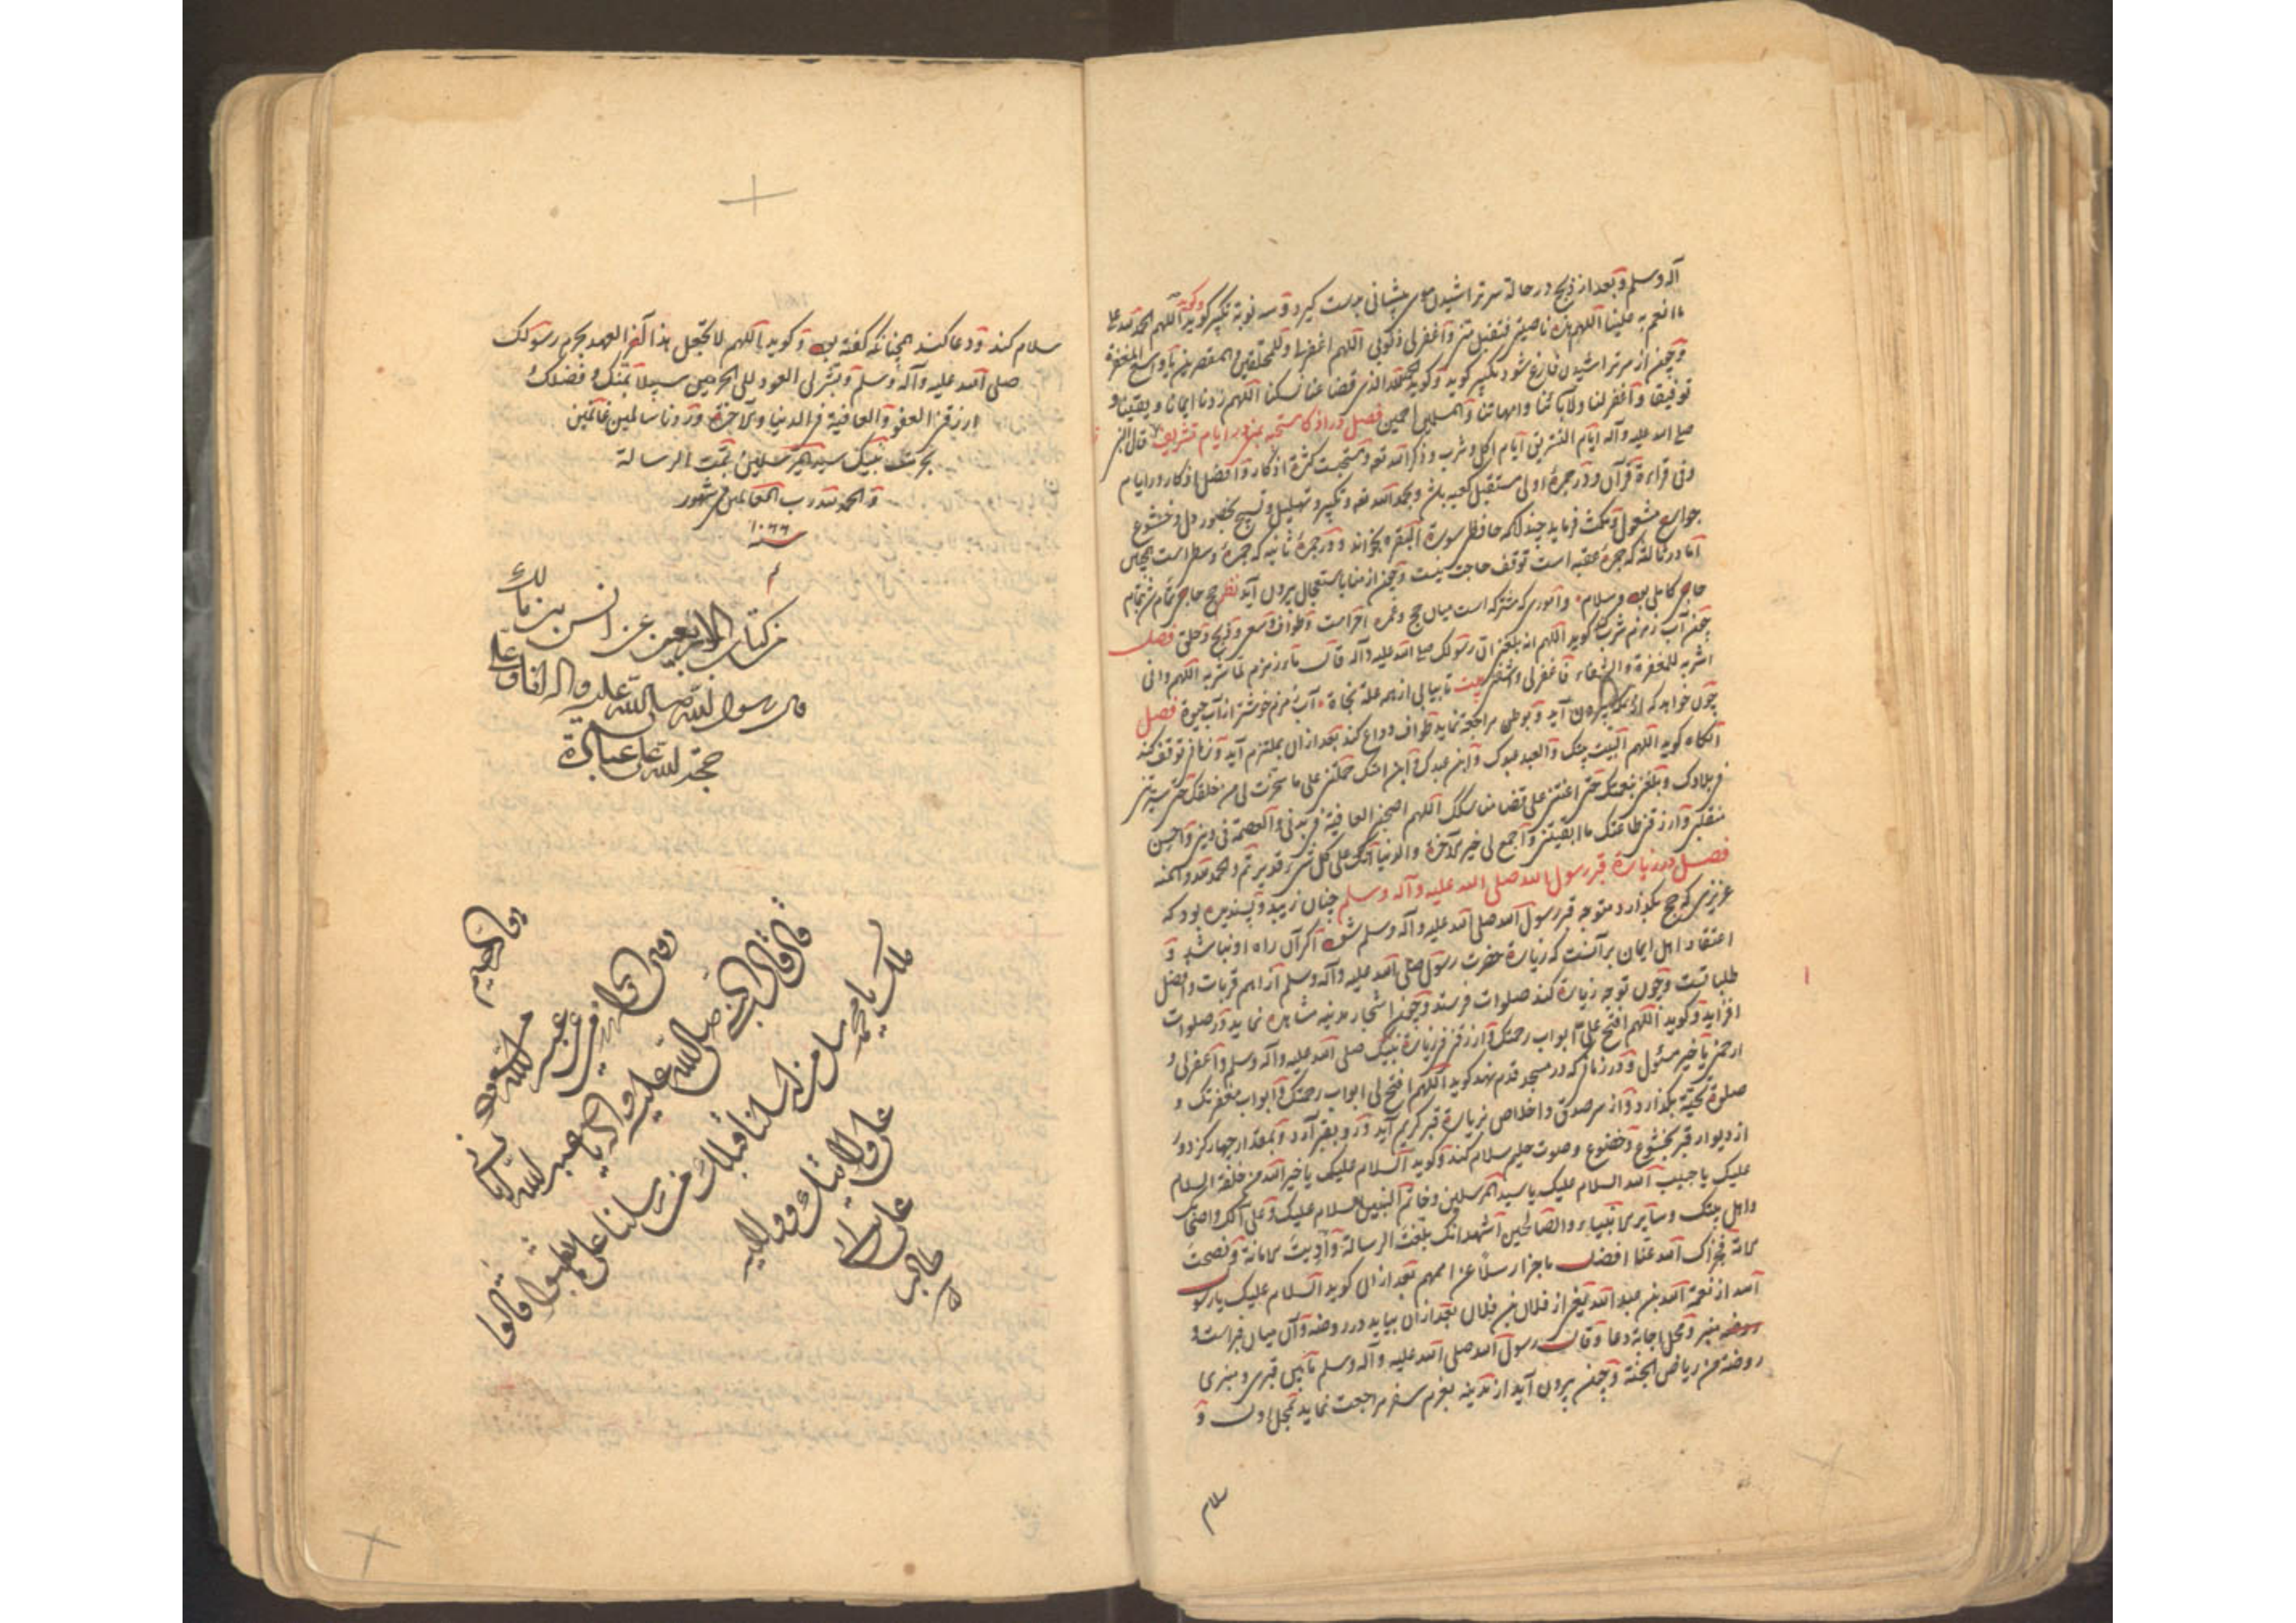 آله وسلم و بعد از ذبح در حالة سر تراشیدن موی پیشانی بدست کیرد و سه نوبة تکبیر کوید و کوید اللهم الحمد لله علی
ما انعم به علینا اللهم هذه ناصیتی فتقبل منی و اغفر لی ذنوبی اللهم اغفر لی و للمحلقین و المقصرین یا واسع المغفرة
و چون از سر تراشیدن فارغ شود تکبیر کوید و کوید الحمد لله الذی قضا عنا نسکنا اللهم زدنا ایمانا و یقینا و
توفیقا و اغفر لنا و لآبائنا و امهاتنا و المسلمین اجمعین فصل در اذکار مستحبه در ایام تشریق قال النبی
صلی الله علیه و آله ایام التشریق ایام اکل و شرب و ذکر الله تعه و مستحبست کثرة اذکار و افضل اذکار در ایام
وفی قراءة قرآن و در جمرهٔ اولی مستقبل کعبه باشد و بحمد الله تعه و تکبیر و تهلیل و تسبیح بحضور دل و خشوع
جوارح مشغول و مکث فرماید چندانکه حافظ سورة البقره بخواند و در جمرهٔ ثانیه که جمرهٔ وسطی است همچنین
اما در ثالثه که جمرهٔ عقبه است توقف حاجت نیست و چون از منا باستعجال بیرون آید حج حاجی تمام
حاجی کامل و سلام و اموری که مشترکه است میان حج و عمره احرامست و طواف و سعی و ذبح و حلق فصل
چون آب زمزم شرب کند کوید اللهم انه بلغنی ان رسولک صلی الله علیه و آله قال ماء زمزم لما شرب له اللهم وانی
اشربه للمغفرة والشفاء فاغفر لی واشفنی بیت تا بیابی از همه علة نجاة آب زمزم خوشتر از آب حیوة فصل
چون خواهد که از مکه بیرون آید و بوطن مراجعة نماید طواف وداع کند بعد از ان بملتزم آید و زمانی توقف کند
آنکاه کوید اللهم البیت بیتک و العبد عبدک و ابن عبدک و ابن امتک حملتنی علی ما سخرت لی من خلقک حتی سیرتنی
فی بلادک و بلغتنی بنعمتک حتی اعنتنی علی قضا مناسکک اللهم اصحبنی العافیة فی بدنی و العصمة فی دینی و احسن
منقلبی و ارزقنی طاعتک ما ابقیتنی و اجمع لی خیر الآخرة والدنیا انک علی کل شیء قدیر تم والحمد لله والمنه
فصل در زیارة قبر رسول الله صلی الله علیه و آله و سلم چنان زیبد و پسندیده بود که
عزیزی که حج بکذارد متوجه قبر رسول الله صلی الله علیه و آله و سلم شود اکر آن راه او نباشد و
اعتقاد اهل ایمان بر آنست که زیارة حضرت رسول صلی الله علیه و آله وسلم از اهم قربات و افضل
طلباتست و چون توجه زیارة کند صلوات فرستد و چون اشجار مدینه مشاهده نماید در صلوات
افزاید و کوید اللهم افتح علیّ ابواب رحمتک و ارزقنی فی زیارة نبیک صلی الله علیه و آله وسلم و اغفر لی و
ارحمنی یا خیر مسئول و در زمانی که در مسجد قدم نهد کوید اللهم افتح لی ابواب رحمتک و ابواب مغفرتک و
صلوة تحیة بکذارد و از سر صدق و اخلاص بزیارة قبر کریم آید و رو بقبر آرد و بمقدار چهار کز دور
از دیوار قبر بخشوع و خضوع و صوت حلیم سلام کند و کوید السلام علیک یا خیر الله من خلقه السلام
علیک یا حبیب الله السلام علیک یا سید المرسلین و خاتم النبیین السلام علیک و علی آلک و اصحابک
و اهل بیتک و سایر الانبیاء و الصالحین اشهد انک بلغت الرسالة و ادیت الامانة و نصحت
الامة فجزاک الله عنا افضل ما جزا رسلا عن اممهم بعد از ان کوید السلام علیک یا رسول
الله از نعمة الله بن عبد الله یعنی از فلان بن فلان بعد از ان بیاید در روضه و آن میان قبر است و
منبر و محل اجابة دعا و قال رسول الله صلی الله علیه و آله و سلم ما بین قبری و منبری
روضة من ریاض الجنة و چون بیرون آید از مدینه بعزم سفر مراجعت نماید بمحل اول و
سلام
سلام کند و دعا کند همچنانکه کفته بود و کوید اللهم لا تجعل هذا آخر العهد بحرم رسولک
صلی الله علیه و آله وسلم و یسر لی العود الی الحرمین سبیلا بمنک و فضلک و
ارزقنی العفو و العافیة فی الدنیا و الآخرة و ردنا سالمین غانمین
بحرمتک نبیک سید المرسلین تمت الرسالة
و الحمد لله رب العالمین فی شهور
سنه ۱۰۶۶
من کتاب الاربعین عن انس بن مالک
قال رسول الله صلی الله علیه و اله انا و علی
حجة الله علی عباده
روی الحافظ
عن عبد الله بن مسعود
قال قال النبی صلی الله علیه و اله یا عبد الله اتانی
ملک یا محمد سل من ارسلنا قبلک من رسلنا علی ما بعثوا قالوا
علی ولایتک و ولایة
علی بن ابی
طالب